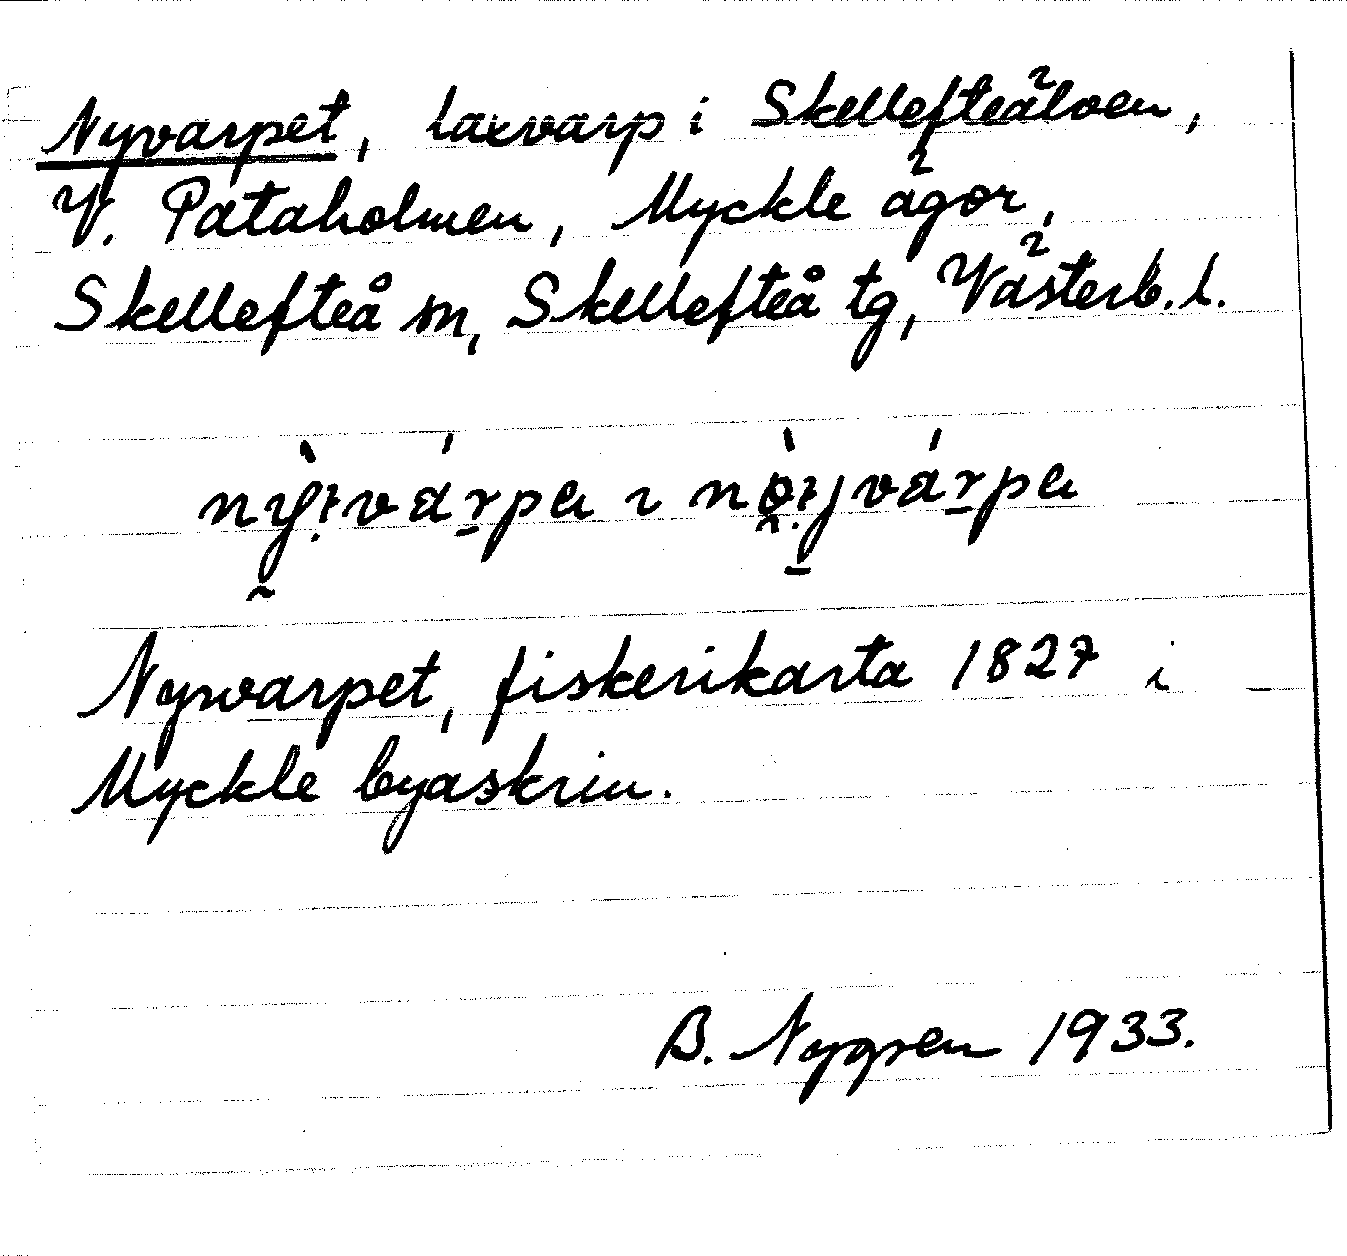 Nyvarpet, laxvarp i Skellefteälven,
V. Pataholmen, Myckle ägor,
Skellefteå sn, Skellefteå tg, Västerb. l.
Nyvarpet, fiskerikarta 1827 i
Myckle byaskrin.
B. Nygren 1933.